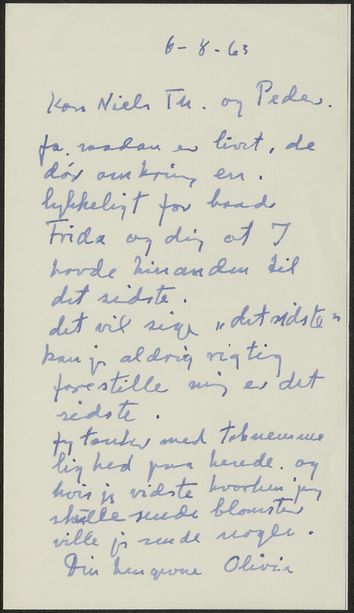 6-8-63
Kære Niels Th. og Peder.
Ja, saadan er livet, de
dør omkring en.
lykkeligt for baade
Frida og dig at I
havde hinanden til
det sidste.
det vil sige "det sidste"
kan je aldrig rigtig
forestille mig er det
sidste.
Je tænker med taknemme
lighed paa hende. og
hvis je vidste hvorhen jeg
skulle sende blomster
ville je sende nogle.
Din hengivne Olivia